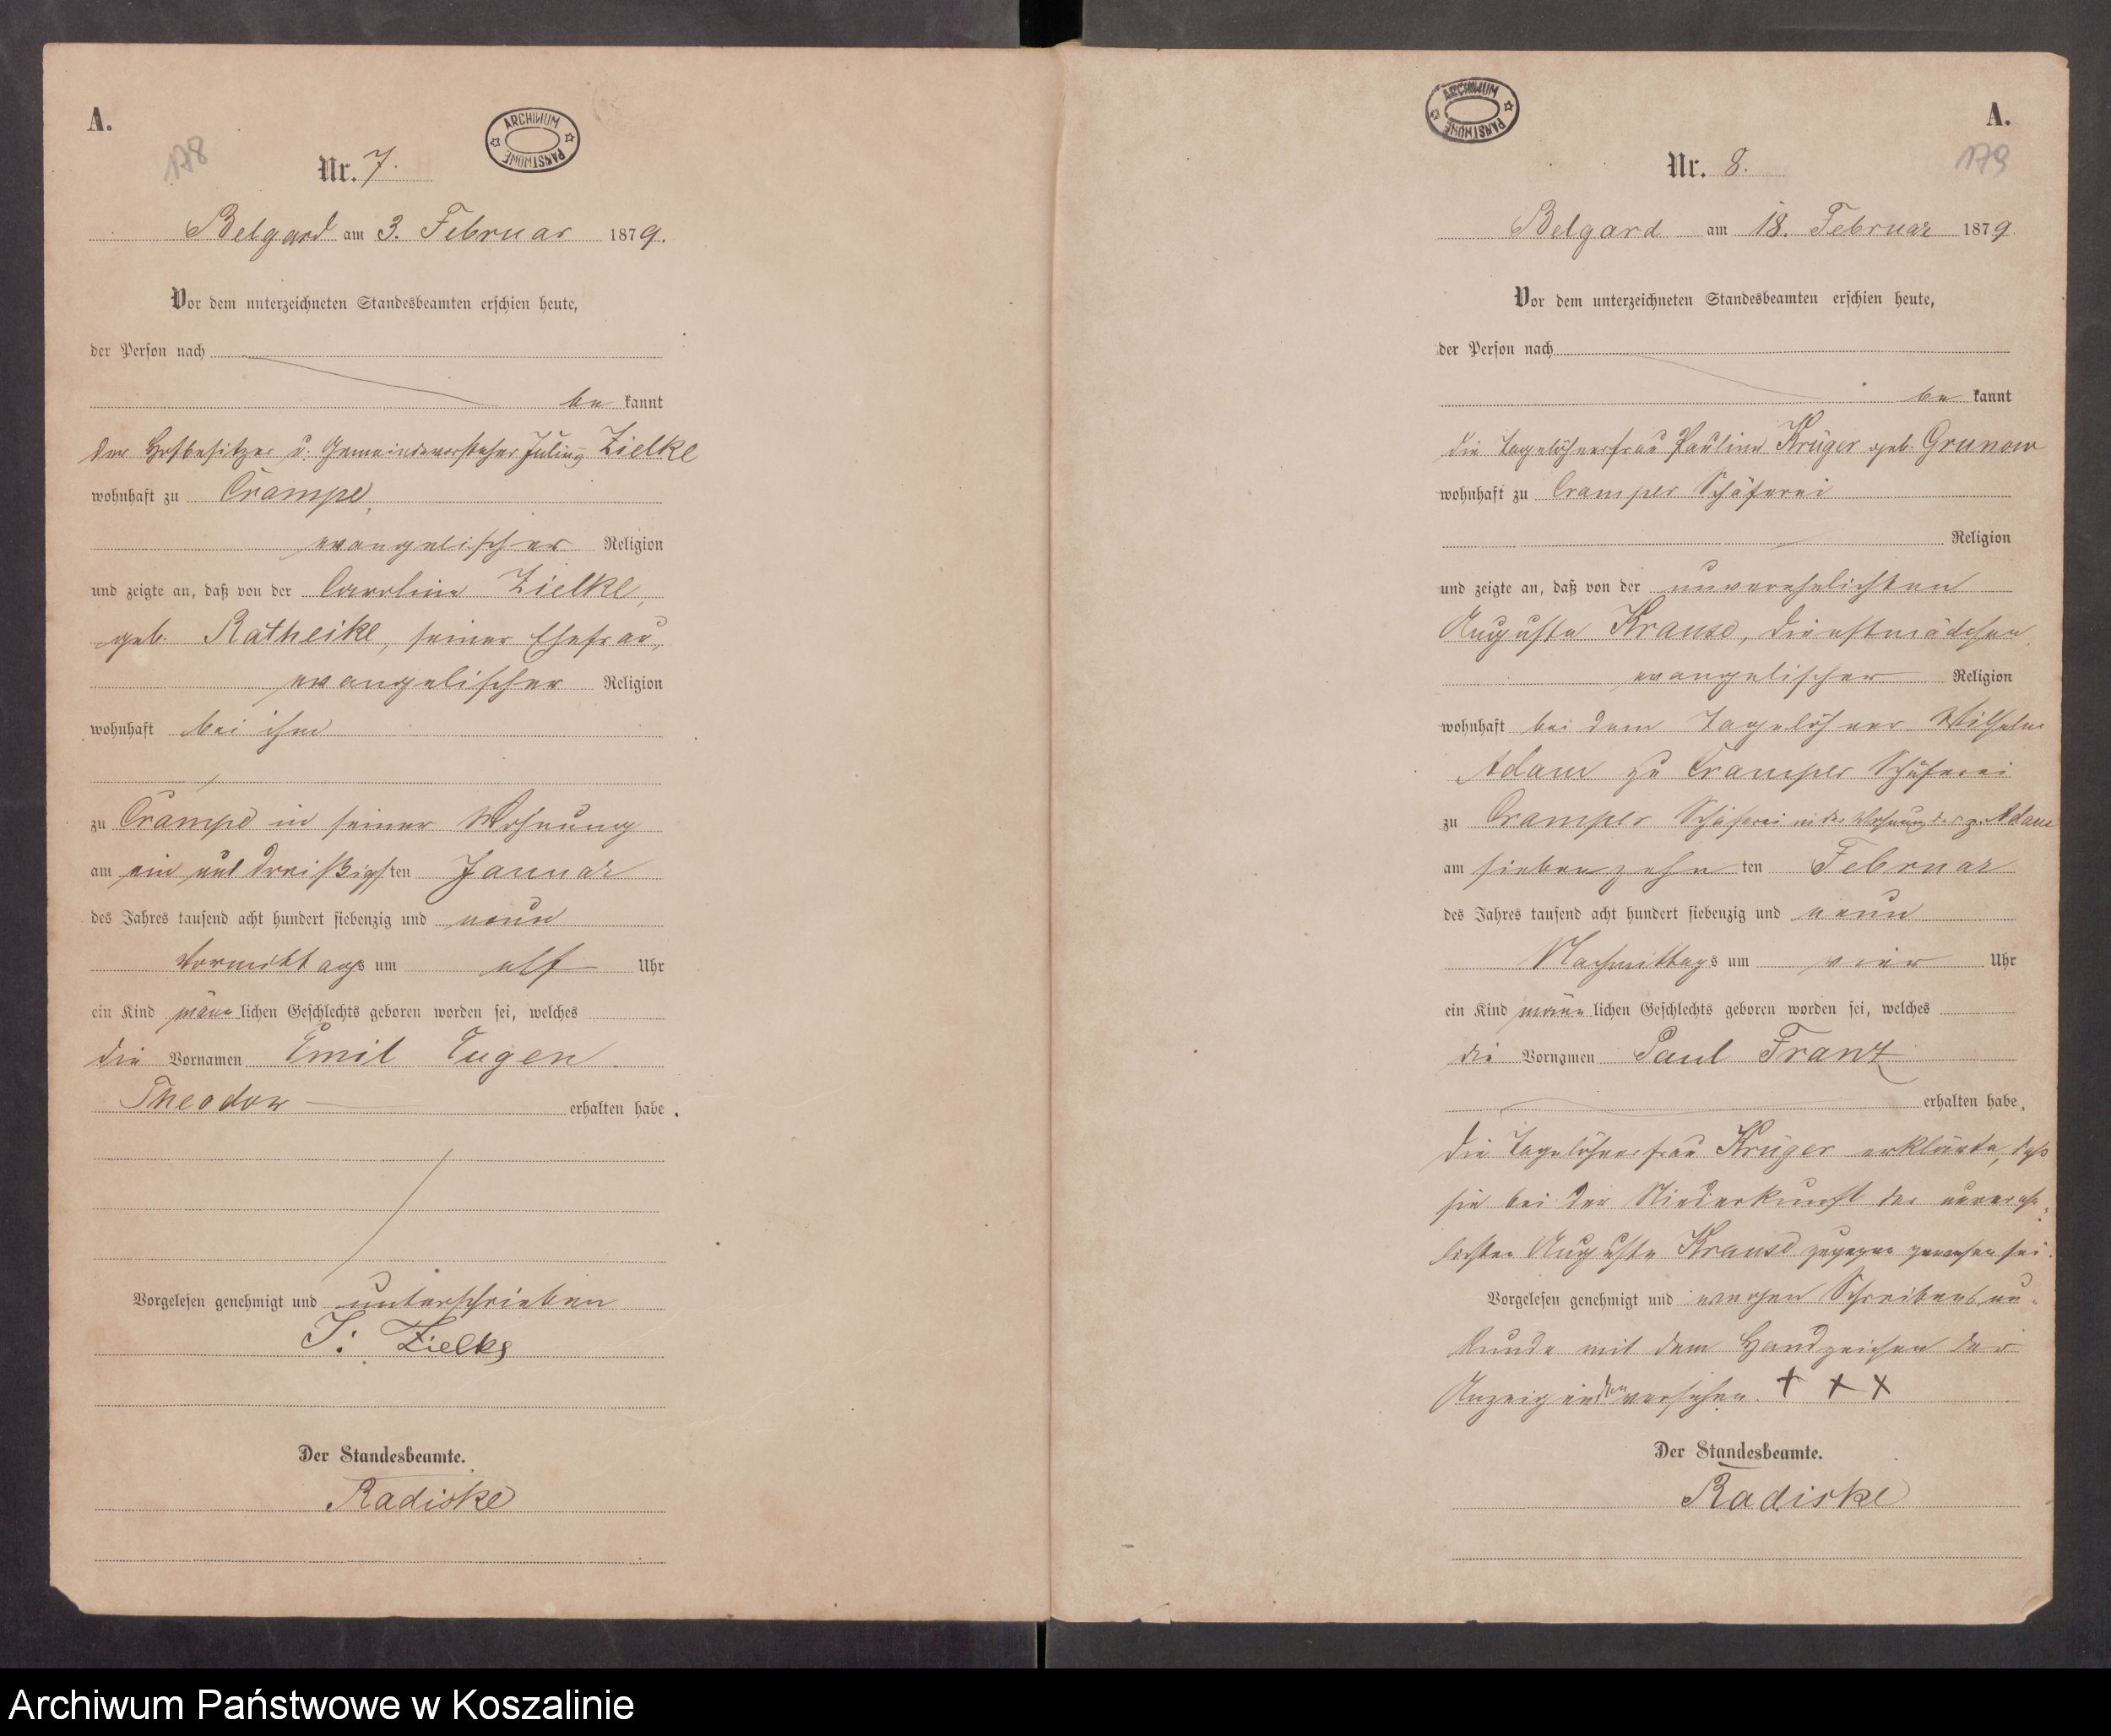 A.
178
ARCHIWUM PAŃSTWOWE
Nr. 7.
Belgard am 3. Februar 1879.
Vor dem unterzeichneten Standesbeamten erschien heute,
der Person nach
be kannt
der Hofbesitzer u. Gemeindevorsteher Julius Zielke
wohnhaft zu Crampe,
evangelischer Religion
und zeigte an, daß von der Caroline Zielke,
geb. Ratheike, seiner Ehefrau,
evangelischer Religion
wohnhaft bei ihm
zu Crampe in seiner Wohnung
am ein und dreißigsten Januar
des Jahres tausend acht hundert siebenzig und neun
Vormittags um elf Uhr
ein Kind männlichen Geschlechts geboren worden sei, welches
die Vornamen Emil Eugen
Theodor erhalten habe.
Vorgelesen genehmigt und unterschrieben
J. Zielke
Der Standesbeamte.
Radiske
ARCHIWUM PAŃSTWOWE
A.
179
Nr. 8.
Belgard am 18. Februar 1879
Vor dem unterzeichneten Standesbeamten erschien heute,
der Person nach
be kannt
die Tagelöhnerfrau Pauline Krüger geb. Grunow
wohnhaft zu Cramper Schäferei
Religion
und zeigte an, daß von der unverehelichten
Auguste Krause, Dienstmädchen,
evangelischer Religion
wohnhaft bei dem Tagelöhner Wilhelm
Adam zu Cramper Schäferei
zu Cramper Schäferei in der Wohnung des p. Adam
am siebenzehn ten Februar
des Jahres tausend acht hundert siebenzig und neun
Nachmittags um vier Uhr
ein Kind männlichen Geschlechts geboren worden sei, welches
die Vornamen Paul Franz
erhalten habe.
Die Tagelöhnerfrau Krüger erklärte, daß
sie bei der Niederkunft der unvereh-
lichten Auguste Krause zugegen gewesen sei.
Vorgelesen genehmigt und wegen Schreibensun-
kunde mit dem Handzeichen der
Anzeigenden versehen. + + +
Der Standesbeamte.
Radiske
Archiwum Państwowe w Koszalinie